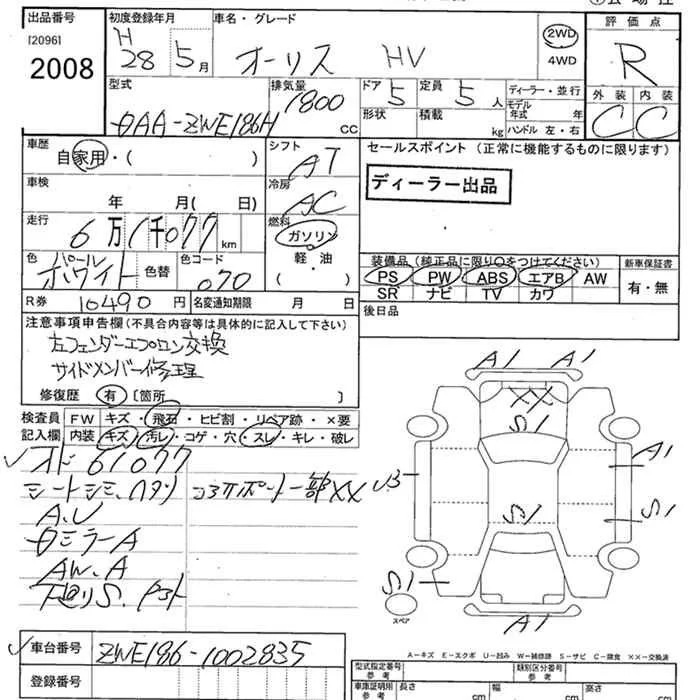 出品番号 初度登録年月 車名・グレード 評価点
[2096]
2008
H 28 5月 オーリス HV 2WD R
4WD
型式 排気量 ドア 定員 ディーラー・並行 外装 内装
DAA-ZWE186H 1800 CC 5 5人 モデル年式 年 C C
形状 積載 kg ハンドル 左・右
車歴 シフト セールスポイント (正常に機能するものに限ります)
自家用・( ) AT
ディーラー出品
車検 冷房
年 月( 日) AC
走行 燃料
6万1千077km ガソリン
軽・油
( )
色 パールホワイト 色替 色コード 070
装備品 (純正品に限り○をつけてください) 新車保証書
PS PW ABS エアB AW 有・無
SR ナビ TV カワ
R券 10490円 名変通知期限 月 日
後日品
注意事項申告欄(不具合内容等は具体的に記入して下さい)
左フェンダーエプロン交換
サイドメンバー修理
修復歴 有 [箇所 ]
検査員 FW キズ・飛石・ヒビ割・リペア跡・×要
記入欄 内装 キズ・汚レ・コゲ・穴・スレ・キレ・破レ
オド 61077
シートシミ、ヘタリ コアサポート一部XX
A.U
ミラーA
AW.A
下廻りS.
A1 A1
XX
S1
A1
U3
S1
S1
S1
スペア
A1
A-キズ E-エクボ U-凹み W-補修跡 S-サビ C-腐食 ××-交換済
車台番号 ZWE186-1002835
登録番号
型式指定番号 参考 類別区分番号 参考
車庫証明用 参考 長さ cm 幅 cm 高さ cm